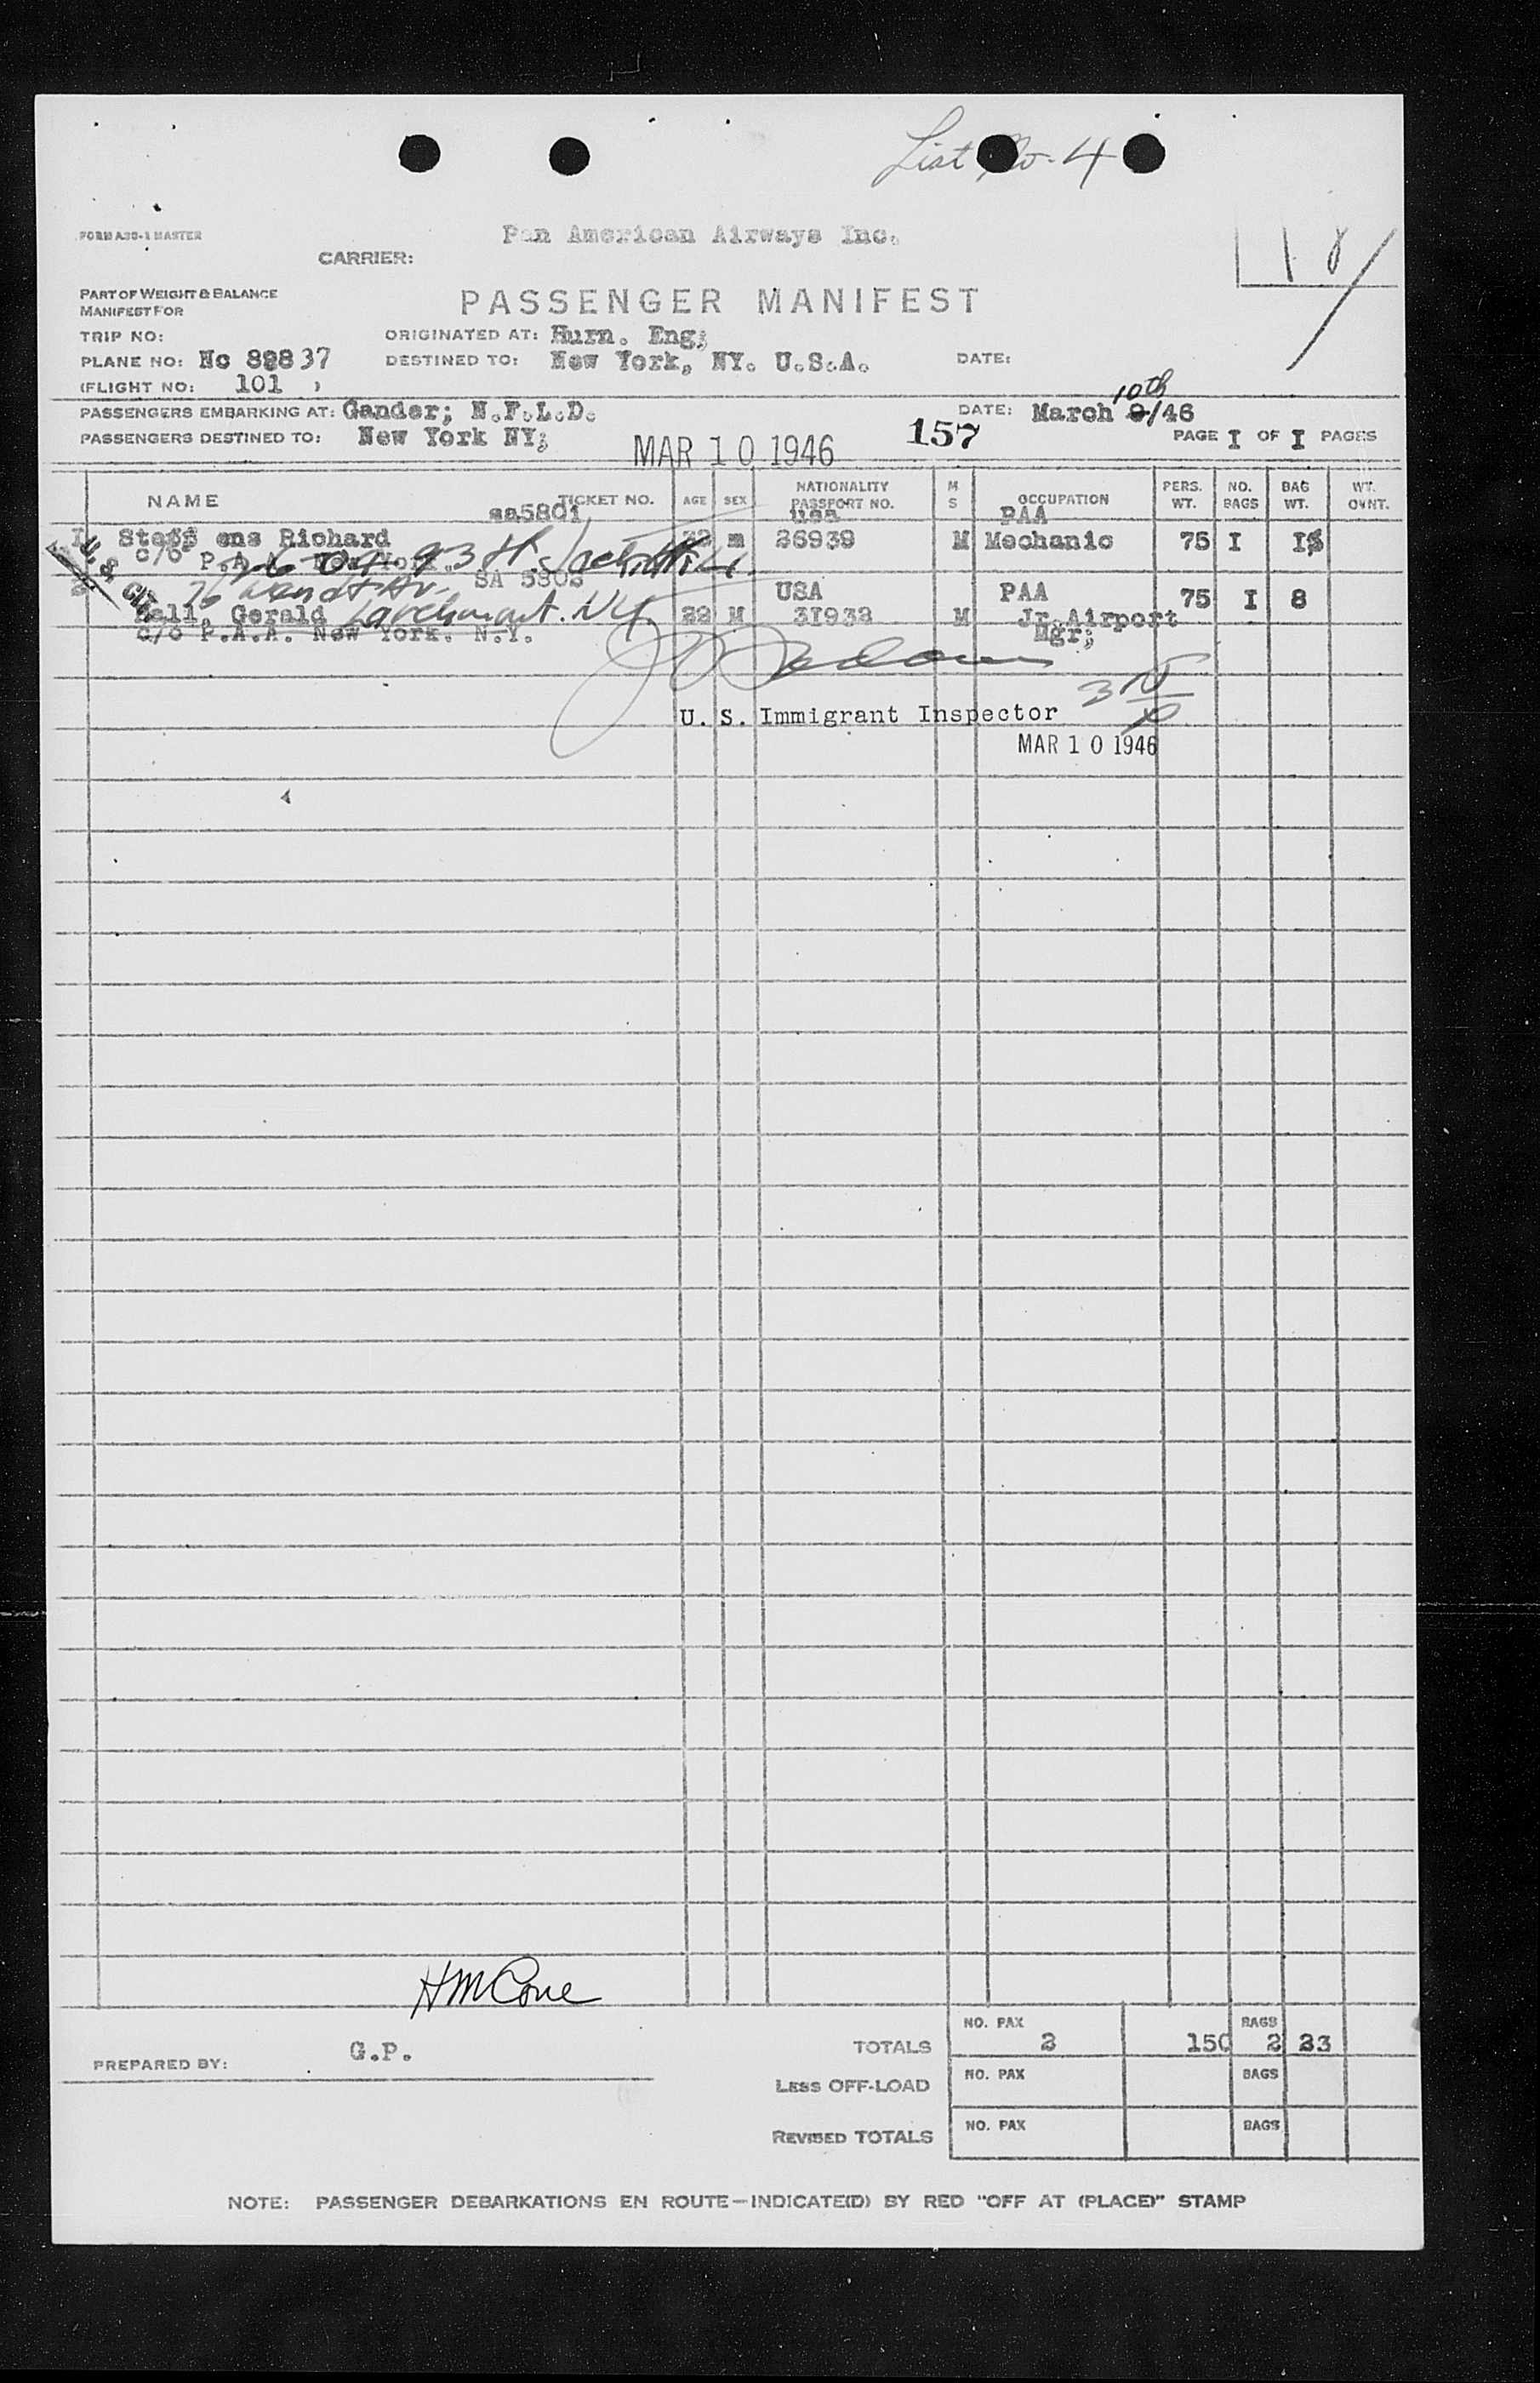 List No. 4
FORM A30-1 MASTER
Pan American Airways Inc.
CARRIER:
18
PART OF WEIGHT & BALANCE
MANIFEST FOR
PASSENGER MANIFEST
TRIP NO:
ORIGINATED AT: Hurn. Eng;
PLANE NO: Nc 88837
DESTINED TO: New York, NY. U.S.A.
DATE:
(FLIGHT NO: 101 )
10th
PASSENGERS EMBARKING AT: Gander; N.F.L.D.
DATE: March 9/46
PASSENGERS DESTINED TO: New York NY;
MAR 10 1946
157
PAGE I OF I PAGES
NAME TICKET NO. AGE SEX NATIONALITY PASSPORT NO. M S OCCUPATION PERS. WT. NO. BAGS BAG WT. WT. OVNT.
sa5801 usa PAA
ens Richard 32 m 26939 M Mechanic 75 I
c/o P.A.A. New York. 93 St.
U.S. Cit
76 Av. SA 5802 USA PAA 75 I 8
Gerald Larchmont. NY. 22 M 31938 M Jr. Airport
c/o P.A.A. New York. N.Y. Mgr;
U. S. Immigrant Inspector
MAR 10 1946
HM Cone
PREPARED BY: G.P.
TOTALS NO. PAX 2 150 BAGS 2 23
LESS OFF-LOAD NO. PAX BAGS
REVISED TOTALS NO. PAX BAGS
NOTE: PASSENGER DEBARKATIONS EN ROUTE—INDICATE(D) BY RED "OFF AT (PLACE)" STAMP